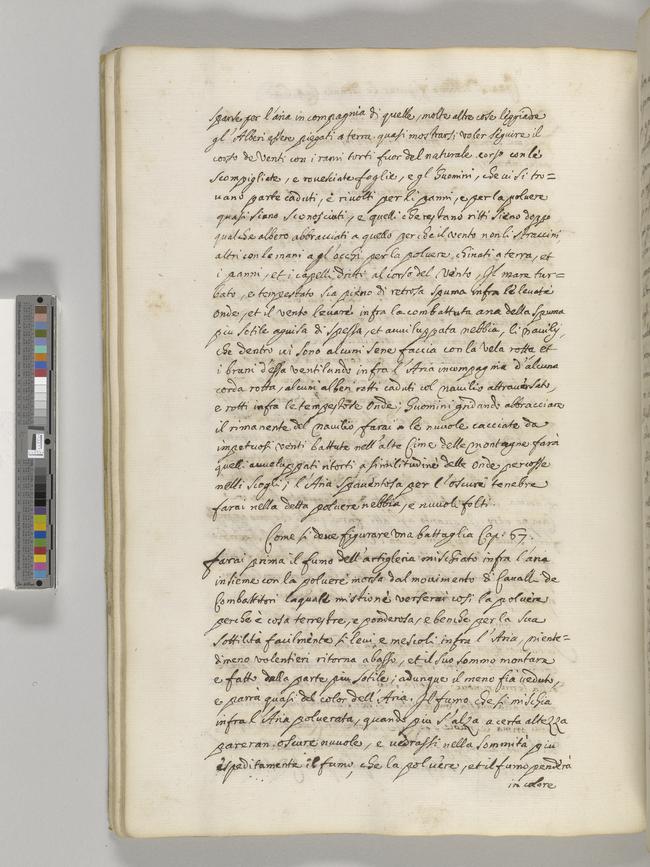 sparse per l'aria in compagnia di quelle, molte altre cose leggiadre
gl'Alberi essere piegati a terra quasi mostrarsi voler seguire il
corso de Venti con i rami torti fuor del naturale corso con le
scompigliate, e rovesciate foglie, e gl'huomini, che vi si tro=
vano parte caduti, e rivolti per li panni, e per la polvere
quasi siano sconosciuti, e quelli che restano ritti sieno doppo
qualche albero abbracciati a quello perche il vento non li stracini
altri con le mani a gl'occhi per la polvere chinati a terra, et
i panni, et i capelli dritti al corso del vento, Il mare tur=
bato, e tempestato sia pieno di retrosa spuma infra le levate
onde, et il vento levare infra la combattuta aria della spuma
piu sotile aguisa di spessa, et avviluppata nebbia, li navilij,
che dentro vi sono alcuni sene faccia con la vela rotta et
i brani d'essa ventilando infra l'Aria in compagnia d'alcuna
corda rotta, alcuni alberi rotti caduti col navilio attraversato,
e rotti infra le tempestose onde; huomini gridando abbracciare
il rimanente del navilio farai a le nuvole cacciate da
impetuosi venti battute nell'alte Cime delle montagne farà
quelli avveluppati ritorti a similitudine delle Onde percosse
nelli scogli; l'Aria spaventosa per l'oscure tenebre
farai nella detta polvere nebbia, e nuvoli folti.
Come si deve figurare una battaglia Cap: 67.
farai prima il fumo dell'artiglieria mischiato infra l'aria
insieme con la polvere mossa dal movimento di Cavalli de
Combattitori laquale mistione verserai cosi la polvere
perche è cosa terrestre, e ponderosa, e benche per la sua
sottilità facilmente si levi, e mescoli infra l'Aria, niente=
dimeno volentieri ritorna abasso, et il suo sommo montare
e fatto dalla parte piu sotile; adunque il meno fia veduto,
e parrà quasi del color dell'Aria. Il fumo che si mischia
infra l'Aria polverata, quando piu s'alza a certa altezza
pareran oscure nuvole, e vedrassi nella sommità piu
espeditamente il fumo, che la polvere, et il fumo penderà
in colore